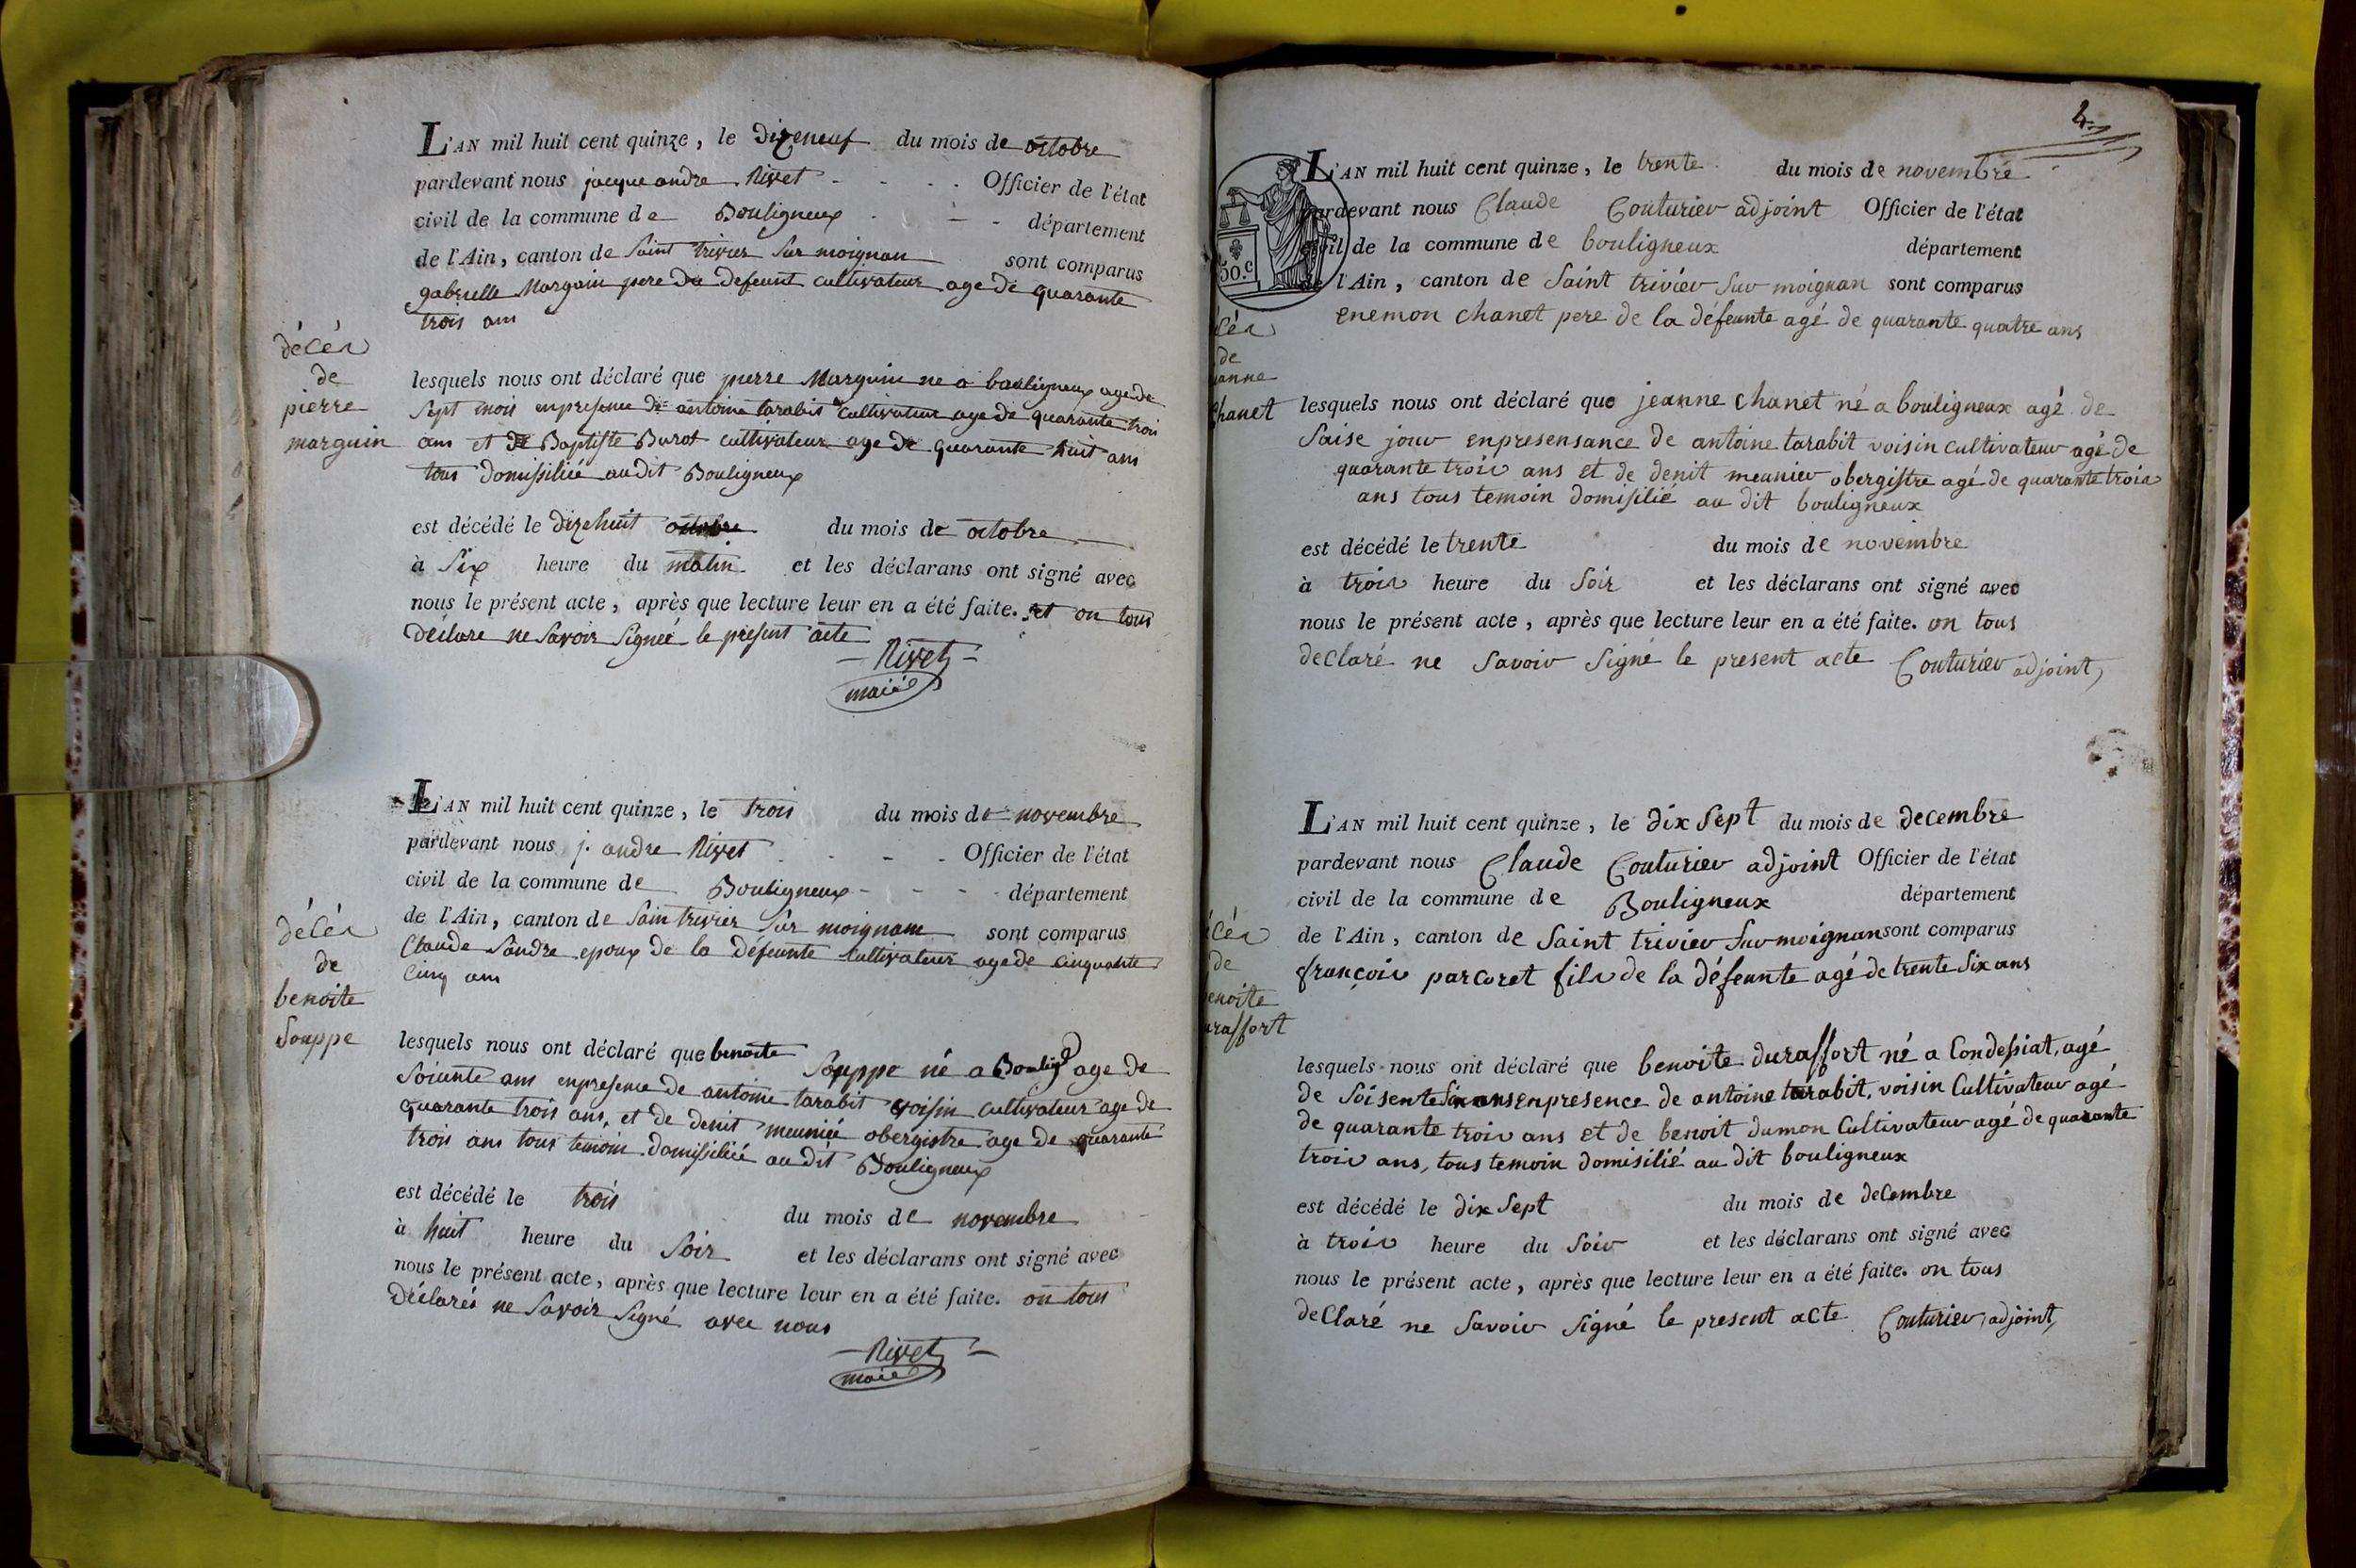 L'AN mil huit cent quinze, le dizeneuf du mois de octobre
pardevant nous jacque andre Rivet - - - - Officier de l'état
civil de la commune de Bouligneux - - - département
de l'Ain, canton de Saint trivier Sur moignan sont comparus
gabrielle Marguin pere du defeunt cultivateur age de quarante
trois ans
décés
de
pierre
marguin
lesquels nous ont déclaré que pierre Marguin ne a bouligneux age de
Sept mois enpresence de antoine tarabit cultivateur age de quarante trois
ans et de Baptiste Burot cultivateur age de quarante huit ans
tous domissilié audit Bouligneux
est décédé le dizehuit du mois de octobre
à Six heure du matin et les déclarans ont signé avec
nous le présent acte, après que lecture leur en a été faite. et on tous
déclare ne Savoir Signé le present acte
Rivet
maire
L'AN mil huit cent quinze, le trois du mois de novembre
pardevant nous j. andre Rivet - - - Officier de l'état
civil de la commune de Bouligneux - - - département
de l'Ain, canton de Sain trivier Sur moignans sont comparus
Claude Sandre epoux de la défeunte cultivateur age de cinquante
cinq ans
décés
de
benoite
Souppe
lesquels nous ont déclaré que benoite Souppe né a Boulig age de
Soiente ans enpresence de antoine tarabit voisin cultivateur age de
quarante trois ans, et de denit meunié obergistre age de quarante
trois ans tous temoin domissilié audit Bouligneux
est décédé le trois du mois de novembre
à huit heure du Soir et les déclarans ont signé avec
nous le présent acte, après que lecture leur en a été faite. on tous
déclarés ne Savoir Signé avec nous
Rivet
maire
4
50.c
L'AN mil huit cent quinze, le trente du mois de novembre
pardevant nous Claude Couturier adjoint Officier de l'état
civil de la commune de bouligneux département
de l'Ain, canton de Saint trivier Sur moignan sont comparus
enemon chanet pere de la défeunte agé de quarante quatre ans
cés
de
anne
Chanet
lesquels nous ont déclaré que jeanne chanet né a bouligneux agé de
Saise jour enpresensance de antoine tarabit voisin cultivateur agé de
quarante trois ans et de denit meunier obergistre agé de quarante trois
ans tous temoin domisilié au dit bouligneux
est décédé le trente du mois de novembre
à trois heure du Soir et les déclarans ont signé avec
nous le présent acte, après que lecture leur en a été faite. on tous
declaré ne Savoir Signé le present acte Couturier adjoint,
L'AN mil huit cent quinze, le dix Sept du mois de decembre
pardevant nous Claude Couturier adjoint Officier de l'état
civil de la commune de Bouligneux département
de l'Ain, canton de Saint trivier Sur moignan sont comparus
françois parcoret fils de la défeunte agé de trente Six ans
cés
de
enoite
urassfort
lesquels nous ont déclaré que benoite durassfort né a Condessiat, agé
de Soisente Six ans enpresence de antoine tarabit, voisin Cultivateur agé
de quarante trois ans et de benoit dumon Cultivateur agé de quarante
trois ans, tous temoin domisilié au dit bouligneux
est décédé le dix Sept du mois de decembre
à trois heure du Soir et les déclarans ont signé avec
nous le présent acte, après que lecture leur en a été faite. on tous
declaré ne Savoir Signé le present acte Couturier, adjoint,